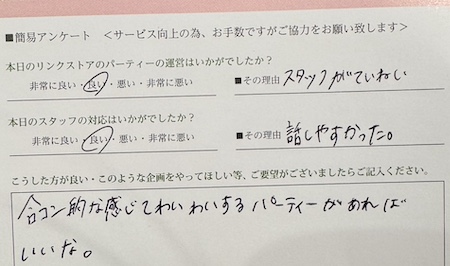 ■簡易アンケート ＜サービス向上の為、お手数ですがご協力をお願い致します＞
本日のリンクストアのパーティーの運営はいかがでしたか？
非常に良い・良い・悪い・非常に悪い ■その理由 スタッフがていねい
本日のスタッフの対応はいかがでしたか？
非常に良い・良い・悪い・非常に悪い ■その理由 話しやすかった。
こうした方が良い・このような企画をやってほしい等、ご要望がございましたらご記入ください。
合コン的な感じでわいわいするパーティーがあれば
いいな。